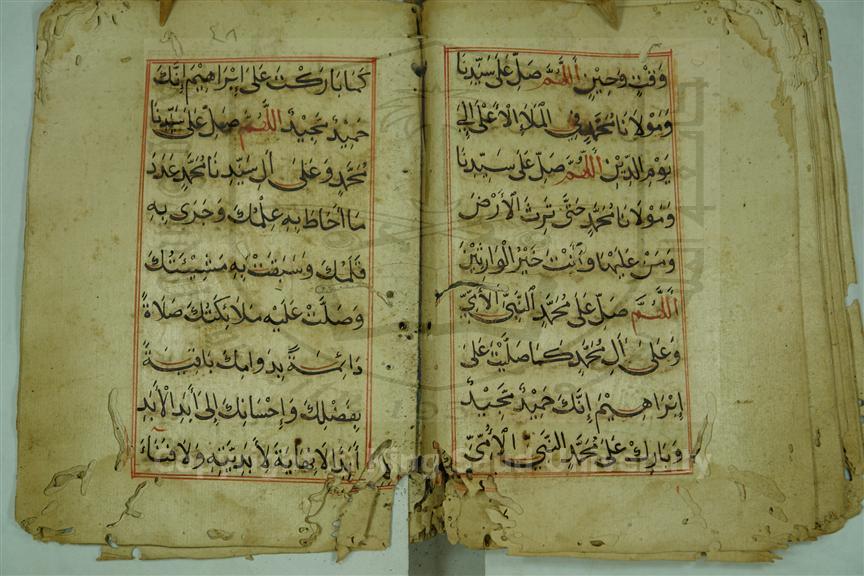 وَقْتٍ وَحِيْنٍ اَللّٰهُمَّ صَلِّ عَلَى سَيِّدِنَا
وَمَوْلَانَا مُحَمَّدٍ فِي الْمَلَإِ الْاَعْلَى اِلَى
يَوْمِ الدِّيْنِ اَللّٰهُمَّ صَلِّ عَلَى سَيِّدِنَا
وَمَوْلَانَا مُحَمَّدٍ حَتَّى تَرِثَ الْاَرْضَ
وَمَنْ عَلَيْهَا وَاَنْتَ خَيْرُ الْوَارِثِيْنَ
اَللّٰهُمَّ صَلِّ عَلَى مُحَمَّدٍ النَّبِيِّ الْاُمِّيِّ
وَعَلَى اٰلِ مُحَمَّدٍ كَمَا صَلَّيْتَ عَلَى
اِبْرَاهِيْمَ اِنَّكَ حَمِيْدٌ مَجِيْدٌ
وَبَارِكْ عَلَى مُحَمَّدٍ النَّبِيِّ الْاُمِّيِّ
كَمَا بَارَكْتَ عَلَى اِبْرَاهِيْمَ اِنَّكَ
حَمِيْدٌ مَجِيْدٌ اَللّٰهُمَّ صَلِّ عَلَى سَيِّدِنَا
مُحَمَّدٍ وَعَلَى اٰلِ سَيِّدِنَا مُحَمَّدٍ عَدَدَ
مَا اَحَاطَ بِهِ عِلْمُكَ وَجَرَى بِهِ
قَلَمُكَ وَسَبَقَتْ بِهِ مَشِيْئَتُكَ
وَصَلَّتْ عَلَيْهِ مَلَائِكَتُكَ صَلَاةً
دَائِمَةً بِدَوَامِكَ بَاقِيَةً
بِفَضْلِكَ وَاِحْسَانِكَ اِلَى اَبَدِ الْاَبَدِ
اَبَدًا لَا نِهَايَةَ لِاَبَدِيَّتِهِ وَلَا فَنَاءَ